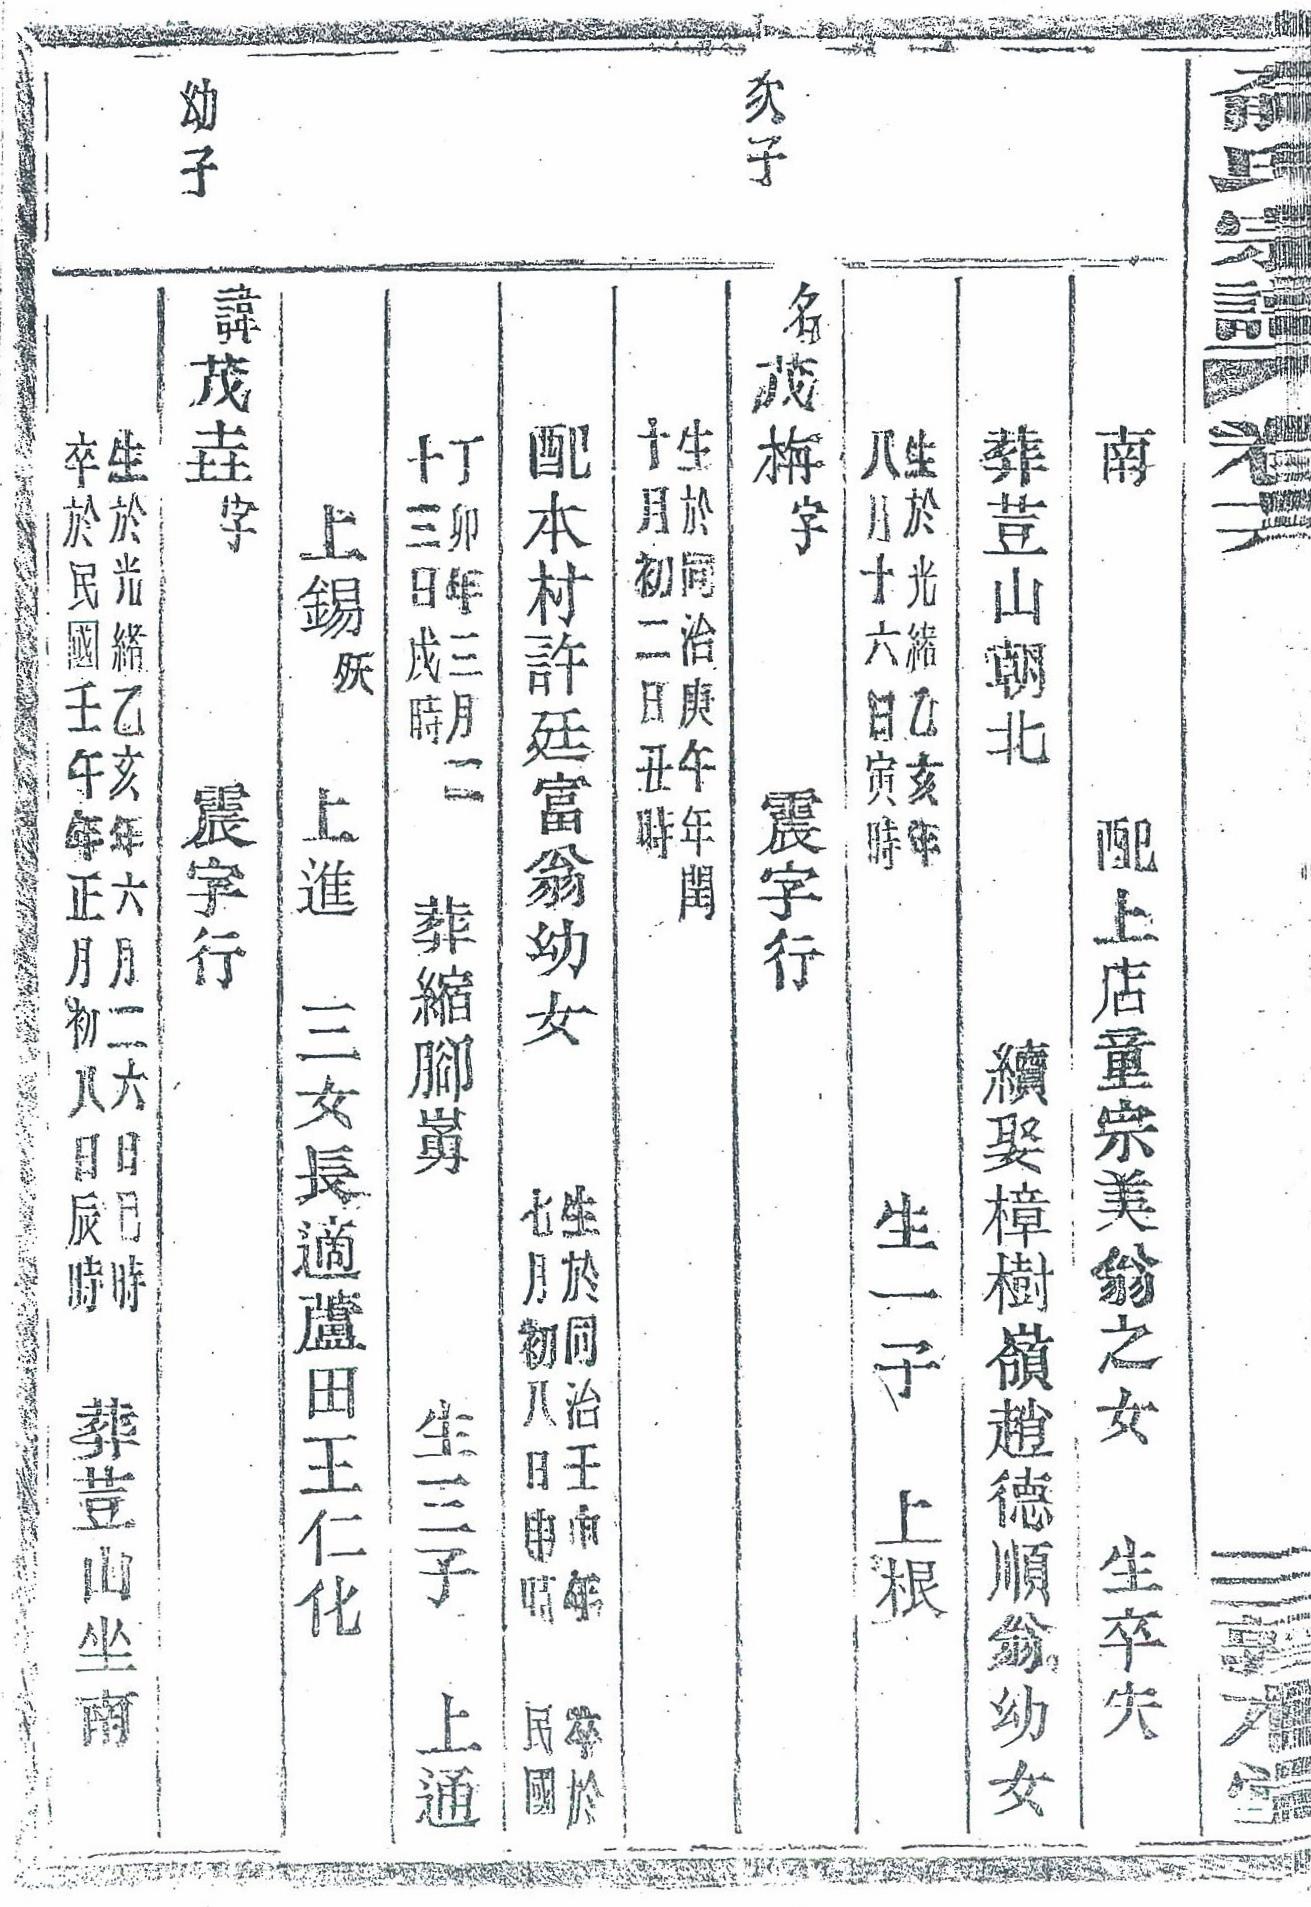 南 配上店童宗美翁之女 生卒失
葬荳山朝北 續娶樟樹嶺趙德順翁幼女
生於光緒乙亥年
八月十六日寅時
生一子 上根
次子
名茂梅字 震字行
生於同治庚午年閏
十月初二日丑時
配本村許廷富翁幼女
生於同治壬申年
七月初八日申時
卒於
民國
丁卯年三月二
十三日戌時
葬縮腳 生三子 上通
上錫殀 上進 三女長適蘆田王仁化
幼子
諱茂垚字 震字行
生於光緒乙亥年六月二六日巳時
卒於民國壬午年正月初八日辰時
葬荳山坐南